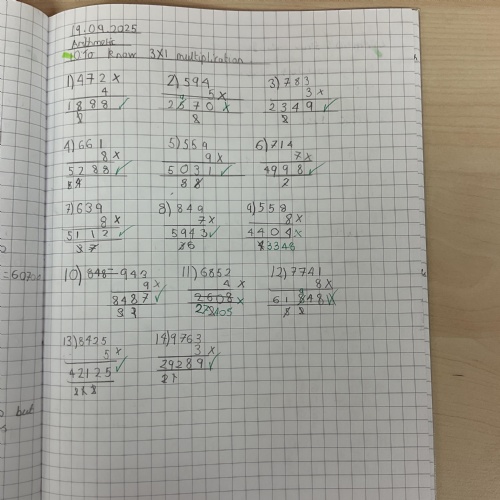 19.09.2025
Arithmetic
To know 3X1 multiplication
1) 472 x 2) 594 3) 783
4 5 x 3 x
1888 ✓ 2970 x 2349 ✓
2
4) 661 5) 559 6) 714
8 x 9 x 7 x
5288 ✓ 5031 ✓ 4998 ✓
2
7) 639 8) 849 9) 558
8 x 7 x 8 x
5112 ✓ 5943 ✓ 4404 x
3 7 36
10) 943 11) 6852 12) 7741
9 x 4 x 8 x
8487 ✓ 2608 x
13) 8425 14) 9763
5 x 3 x
42125 ✓ 29289 ✓
21
= 6070
but